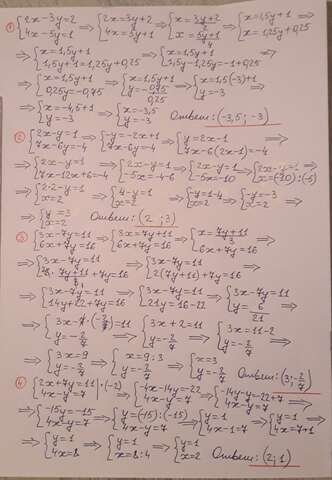 ① {2x-3y=2 4x-5y=1 ⇒ {2x=3y+2 4x=5y+1 ⇒ {x=3y+2/2 x=5y+1/4 ⇒ {x=1,5y+1 x=1,25y+0,25
⇒ {x=1,5y+1 1,5y+1=1,25y+0,25 ⇒ {x=1,5y+1 1,5y-1,25y=-1+0,25 ⇒
⇒ {x=1,5y+1 0,25y=-0,75 ⇒ {x=1,5y+1 y=-0,75/0,25 ⇒ {x=1,5(-3)+1 y=-3 ⇒
⇒ {x=-4,5+1 y=-3 ⇒ {x=-3,5 y=-3 Ответ: (-3,5; -3)
② {2x-y=1 7x-6y=-4 ⇒ {-y=-2x+1 7x-6y=-4 ⇒ {y=2x-1 7x-6(2x-1)=-4 ⇒
⇒ {2x-y=1 7x-12x+6=-4 ⇒ {2x-y=1 -5x=-4-6 ⇒ {2x-y=1 -5x=-10 ⇒ {2x-y=1 x=(-10):(-5) ⇒
⇒ {2·2-y=1 x=2 ⇒ {4-y=1 x=2 ⇒ {-y=1-4 x=2 ⇒ {-y=-3 x=2 ⇒
⇒ {y=3 x=2 Ответ: (2 ; 3)
③ {3x-7y=11 6x+7y=16 ⇒ {3x=7y+11 6x+7y=16 ⇒ {x=7y+11/3 6x+7y=16 ⇒
⇒ {3x-7y=11 6·7y+11/3+7y=16 ⇒ {3x-7y=11 2(7y+11)+7y=16 ⇒
⇒ {3x-7y=11 14y+22+7y=16 ⇒ {3x-7y=11 21y=16-22 ⇒ {3x-7y=11 y=-6/21 ⇒
⇒ {3x-7·(-2/7)=11 y=-2/7 ⇒ {3x+2=11 y=-2/7 ⇒ {3x=11-2 y=-2/7 ⇒
⇒ {3x=9 y=-2/7 ⇒ {x=9:3 y=-2/7 ⇒ {x=3 y=-2/7 Ответ: (3; -2/7)
④ {2x+7y=11 |·(-2) 4x-y=7 ⇒ {-4x-14y=-22 4x-y=7 ⇒ {-14y-y=-22+7 4x-y=7 ⇒
⇒ {-15y=-15 4x-y=7 ⇒ {y=(-15):(-15) 4x-y=7 ⇒ {y=1 4x-1=7 ⇒ {y=1 4x=7+1 ⇒
⇒ {y=1 4x=8 ⇒ {y=1 x=8:4 ⇒ {y=1 x=2 Ответ: (2; 1)